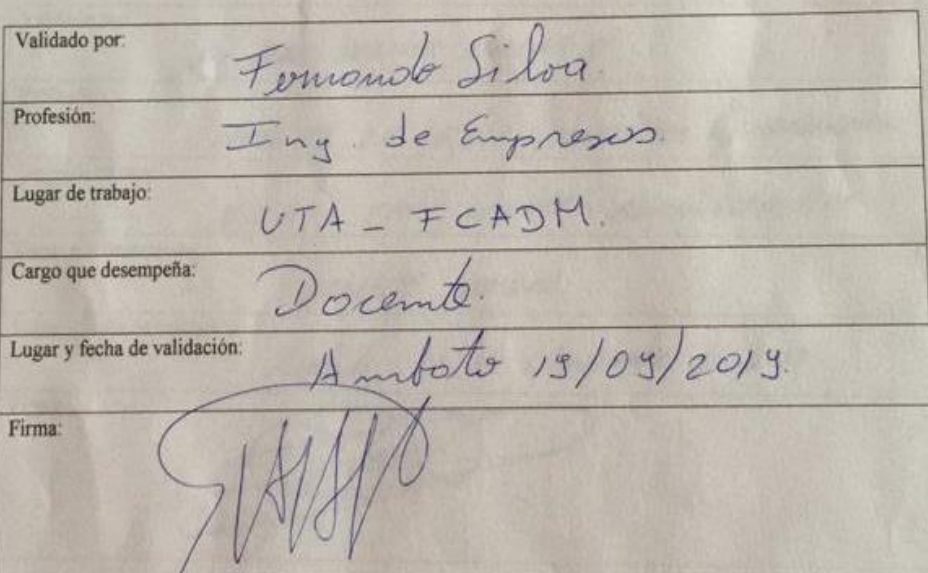 Validado por:
Fernando Silva.
Profesión:
Ing. de Empresas.
Lugar de trabajo:
UTA - FCADM.
Cargo que desempeña:
Docente.
Lugar y fecha de validación:
Ambato 19/09/2019.
Firma: